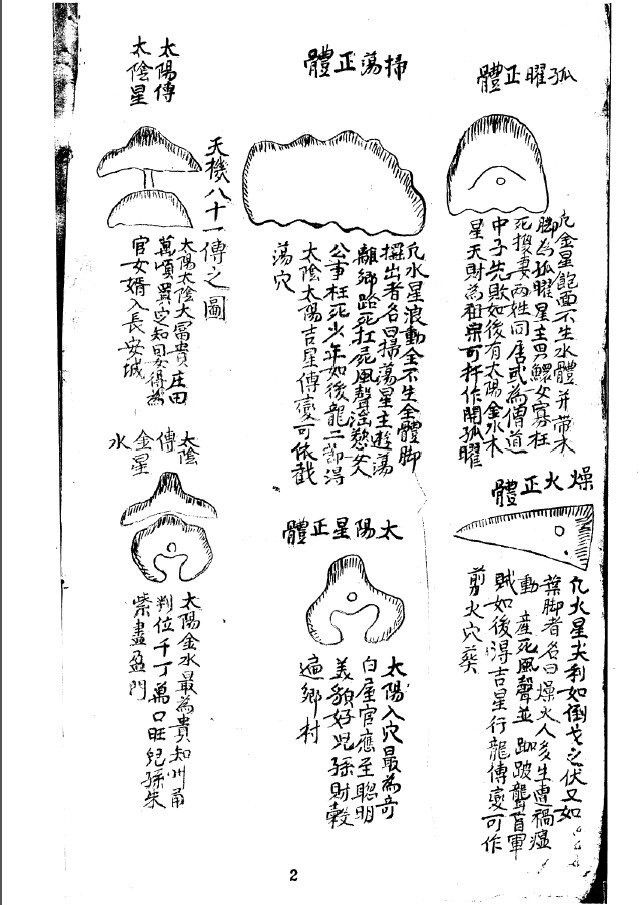 孤曜正體
凡金星飽面不生水體并帶木
脚為孤曜星主男鰥女寡枉
死換妻两姓同居或為僧道
中子先敗如後有太陽金水木
星天財為祖宗可扦作開孤曜
燥火正體
凡火星尖利如倒戈之伏又如
葉脚者名曰燥火人多生遭禍瘟
動產死風聲並跏跛聾盲軍
賊如後得吉星行龍傳变可作
剪火穴葵
掃蕩正體
凡水星浪動全不生金體脚
擺出者名曰掃蕩星主遊蕩
離鄉路死扛死風聲淫慾女人
公事枉死少年如後龍二節得
太陰太陽吉星傳变可依截
蕩穴
太陽星正體
太陽入穴最為奇
白屋官應至聰明
美貌好兒孫財穀
遍鄉村
天機八十一傳之圖
太陽傳
太陰星
太陽太陰大富貴庄田
萬頃異定知回女得為
官女婿入長安城
太陰
傳金星
水
太陽金水最為貴知州甬
判位千丁萬口旺兒孫朱
紫盡盈門
2